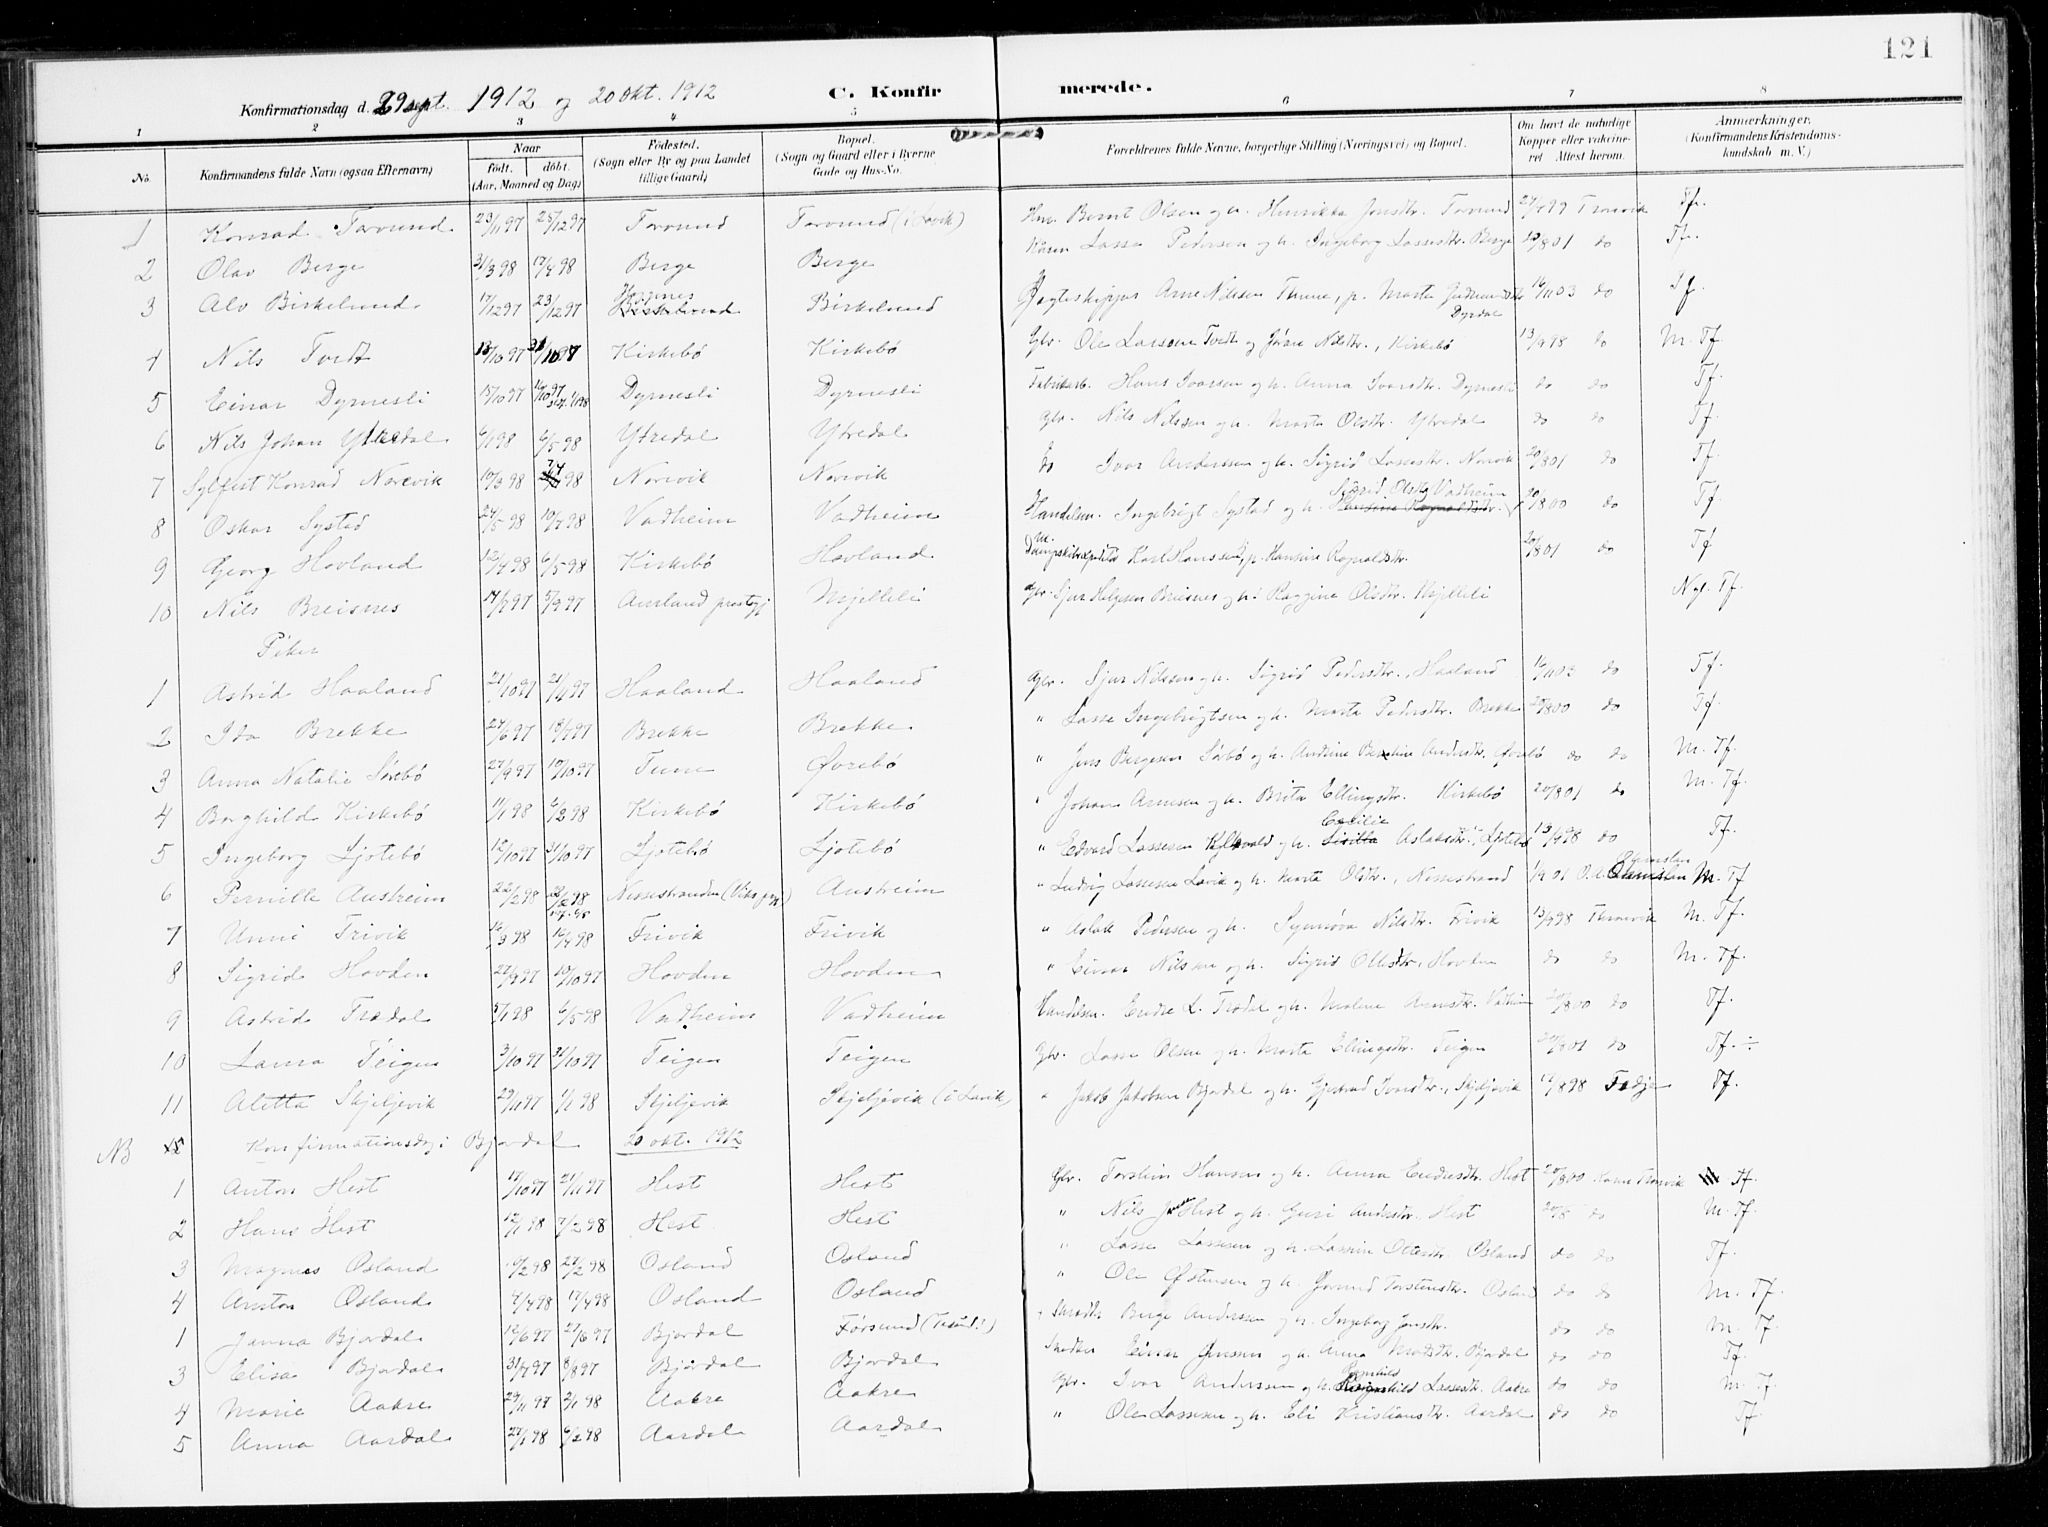 121
Konfirmationsdag d. 29 sept. 1912 og 20 okt. 1912 C. Konfirmerede.
1 2 3 4 5 6 7 8
No. Konfirmandens fulde Navn (ogsaa Efternavn) Naar født. døbt. (Aar, Maaned og Dag) Fødested. (Sogn eller By og paa Landet tillige Gaard) Bopæl. (Sogn og Gaard eller i Byerne Gade og Hus-No. Forældrenes fulde Navne, borgerlige Stilling (Næringsvei) og Bopæl. Om havt de naturlige Kopper eller vakcineret Attest herom. Anmærkninger. (Konfirmandens Kristendomskundskab m. V.)
1 Konrad Torvund 23/11 97 25/12 97 Torvund Torvund (i Lavik) Bernt Olsen og h. Henrikka Jensdtr. Torvund Tf.
2 Olav Berge 31/3 98 17/4 98 Berge Berge Lasse Pedersen og h. Ingeborg Lassesdtr. Berge 20/8 01 do Tf.
3 Alv Birkelund 17/12 97 23/12 97 Birkelund Jagteskipper Arne Nilssen Tunne, p. Marta Gudmundsdtr Dyrdal 16/11 03 do Tf.
4 Nils Tvedt 13/10 97 31/10 97 Kirkebø Kirkebø Gbr. Ole Larssen Tvedt og Jørine Nilsdtr., Kirkebø 13/9 98 do M. Tf.
5 Einar Dyrnesli 15/10 97 Dyrnesli Dyrnesli Fabrikarb. Hans Ivarsen og h. Anna Ivarsdtr. Dyrnesli do do Tf.
6 Nils Johan Ytredal 6/1 98 6/5 98 Ytredal Ytredal Gbr. Nils Nilssen og h. Marta Olsdtr. Ytredal do do Tf.
7 Sylfest Konrad Norevik 10/3 98 Norevik Norevik do Ivar Anderssen og h. Sigrid Lassesdtr. Norevik 20/8 01 do Tf.
8 Oskar Systad 24/5 98 10/7 98 Vadheim Vadheim Handelsm. Ingebrigt Systad og h. Sigrid Olsdtr Vadheim 20/8 00 do Tf
9 Georg Hovland 12/4 98 6/5 98 Kirkebø Hovland Karl Hanssen, p. Hansine Ragnvaldsdtr. 20/8 01 do Tf
10 Nils Breisnes 14/7 97 5/9 97 Aurland prestegj Mjelleli Gbr. Sjur Helgesen Breisnes og h. Raggina Olsdtr. Mjelleli Ngl. Tf.
Piker
1 Astrid Haaland 21/10 97 21/11 97 Haaland Haaland Gbr. Sjur Nilssen og h. Sigrid Pedersdtr., Haaland 16/11 03 do Tf.
2 Ida Brekke 24/6 97 18/7 97 Brekke Brekke " Lasse Ingebrigtsen og h. Marta Pedersdtr. Brekke 20/8 00 do Tf.
3 Anna Natalie Sørebø 27/9 97 10/10 97 Tune Øvrebø " Jens Bergesen Sørbø og h. Andersdtr. Øvrebø do do M. Tf.
4 Borghild Kirkebø 11/1 98 6/2 98 Kirkebø Kirkebø " Johan Arnesen og h. Brita Ellingsdtr. Kirkebø 20/8 01 do M. Tf.
5 Ingeborg Ljotebø 12/10 97 31/10 97 Ljotebø Ljotebø " Edvard Lassesen og h. Cecilie Aslaksdtr., Ljotebø 13/9 98 do Tf.
6 Pernille Austreim 22/2 98 Nessestranden (Viks pgj) Austreim " Ludvig Lassesen Lavik og h. Marta Olsdtr., Nessestrand M. Tf
7 Unni Frivik 16/3 98 16/4 98 Frivik Frivik " Aslak Pedersen og h. Synnøva Nilsdtr. Frivik 13/9 98 M. Tf.
8 Sigrid Hovden 22/9 97 10/10 97 Hovden Hovden " Einar Nilssen og h. Sigrid Ottesdtr., Hovden do do M. Tf.
9 Astrid Trædal 5/1 98 6/5 98 Vadheim Vadheim Handelsm. Endre L. Trædal og h. Malene Arnesdtr. Vadheim 20/8 00 do Tf.
10 Laura Teigen 3/10 97 31/10 97 Teigen Teigen Gbr. Lasse Olsen og h. Marta Ellingsdtr. Teigen 20/8 01 do Tf. ÷
11 Aletta Skjeljevik 29/11 97 1/1 98 Skjeljevik Skjeljevik (i Lavik) " Jakob Jakobsen Bjordal og h. Gjertrud Ivarsdtr., Skjeljevik 17/8 98 Tf.
NB Konfirmationsdag i Bjordal 20 okt. 1912
1 Anton Hest 17/10 97 21/11 97 Hest Hest Gbr. Torstein Hansen og h. Anna Endresdtr. Hest 20/8 00 Tf.
2 Hans Hest 12/1 98 7/2 98 Hest Hest " Nils Hest og h. Guri Andersdtr. Hest 20/8 do M. Tf.
3 Magnus Osland 10/2 98 27/2 98 Osland Osland " Lasse Lassesen og h. Ottesdtr. Osland do do Tf.
4 Anton Osland 4/4 98 17/4 98 Osland Osland " Ole Østensen og h. Jorund Torstensdtr. Osland do do M. Tf.
1 Janna Bjordal 12/6 97 27/6 97 Bjordal Børge Anderssen og h. Ingeborg Jensdtr. do do M. Tf.
3 Elisa Bjordal 31/7 97 8/8 97 Bjordal Bjordal Einar Jenssen og h. Anna Madsdtr. Bjordal do do Tf.
4 Marie Aakre 29/11 97 2/1 98 Aakre Aakre Gbr. Ivar Anderssen og h. Lassesdtr. Aakre do do M. Tf.
5 Anna Aardal 27/1 98 6/2 98 Aardal Aardal " Ole Lassesen og h. Eli Kristiansdtr. Aardal do do Tf.